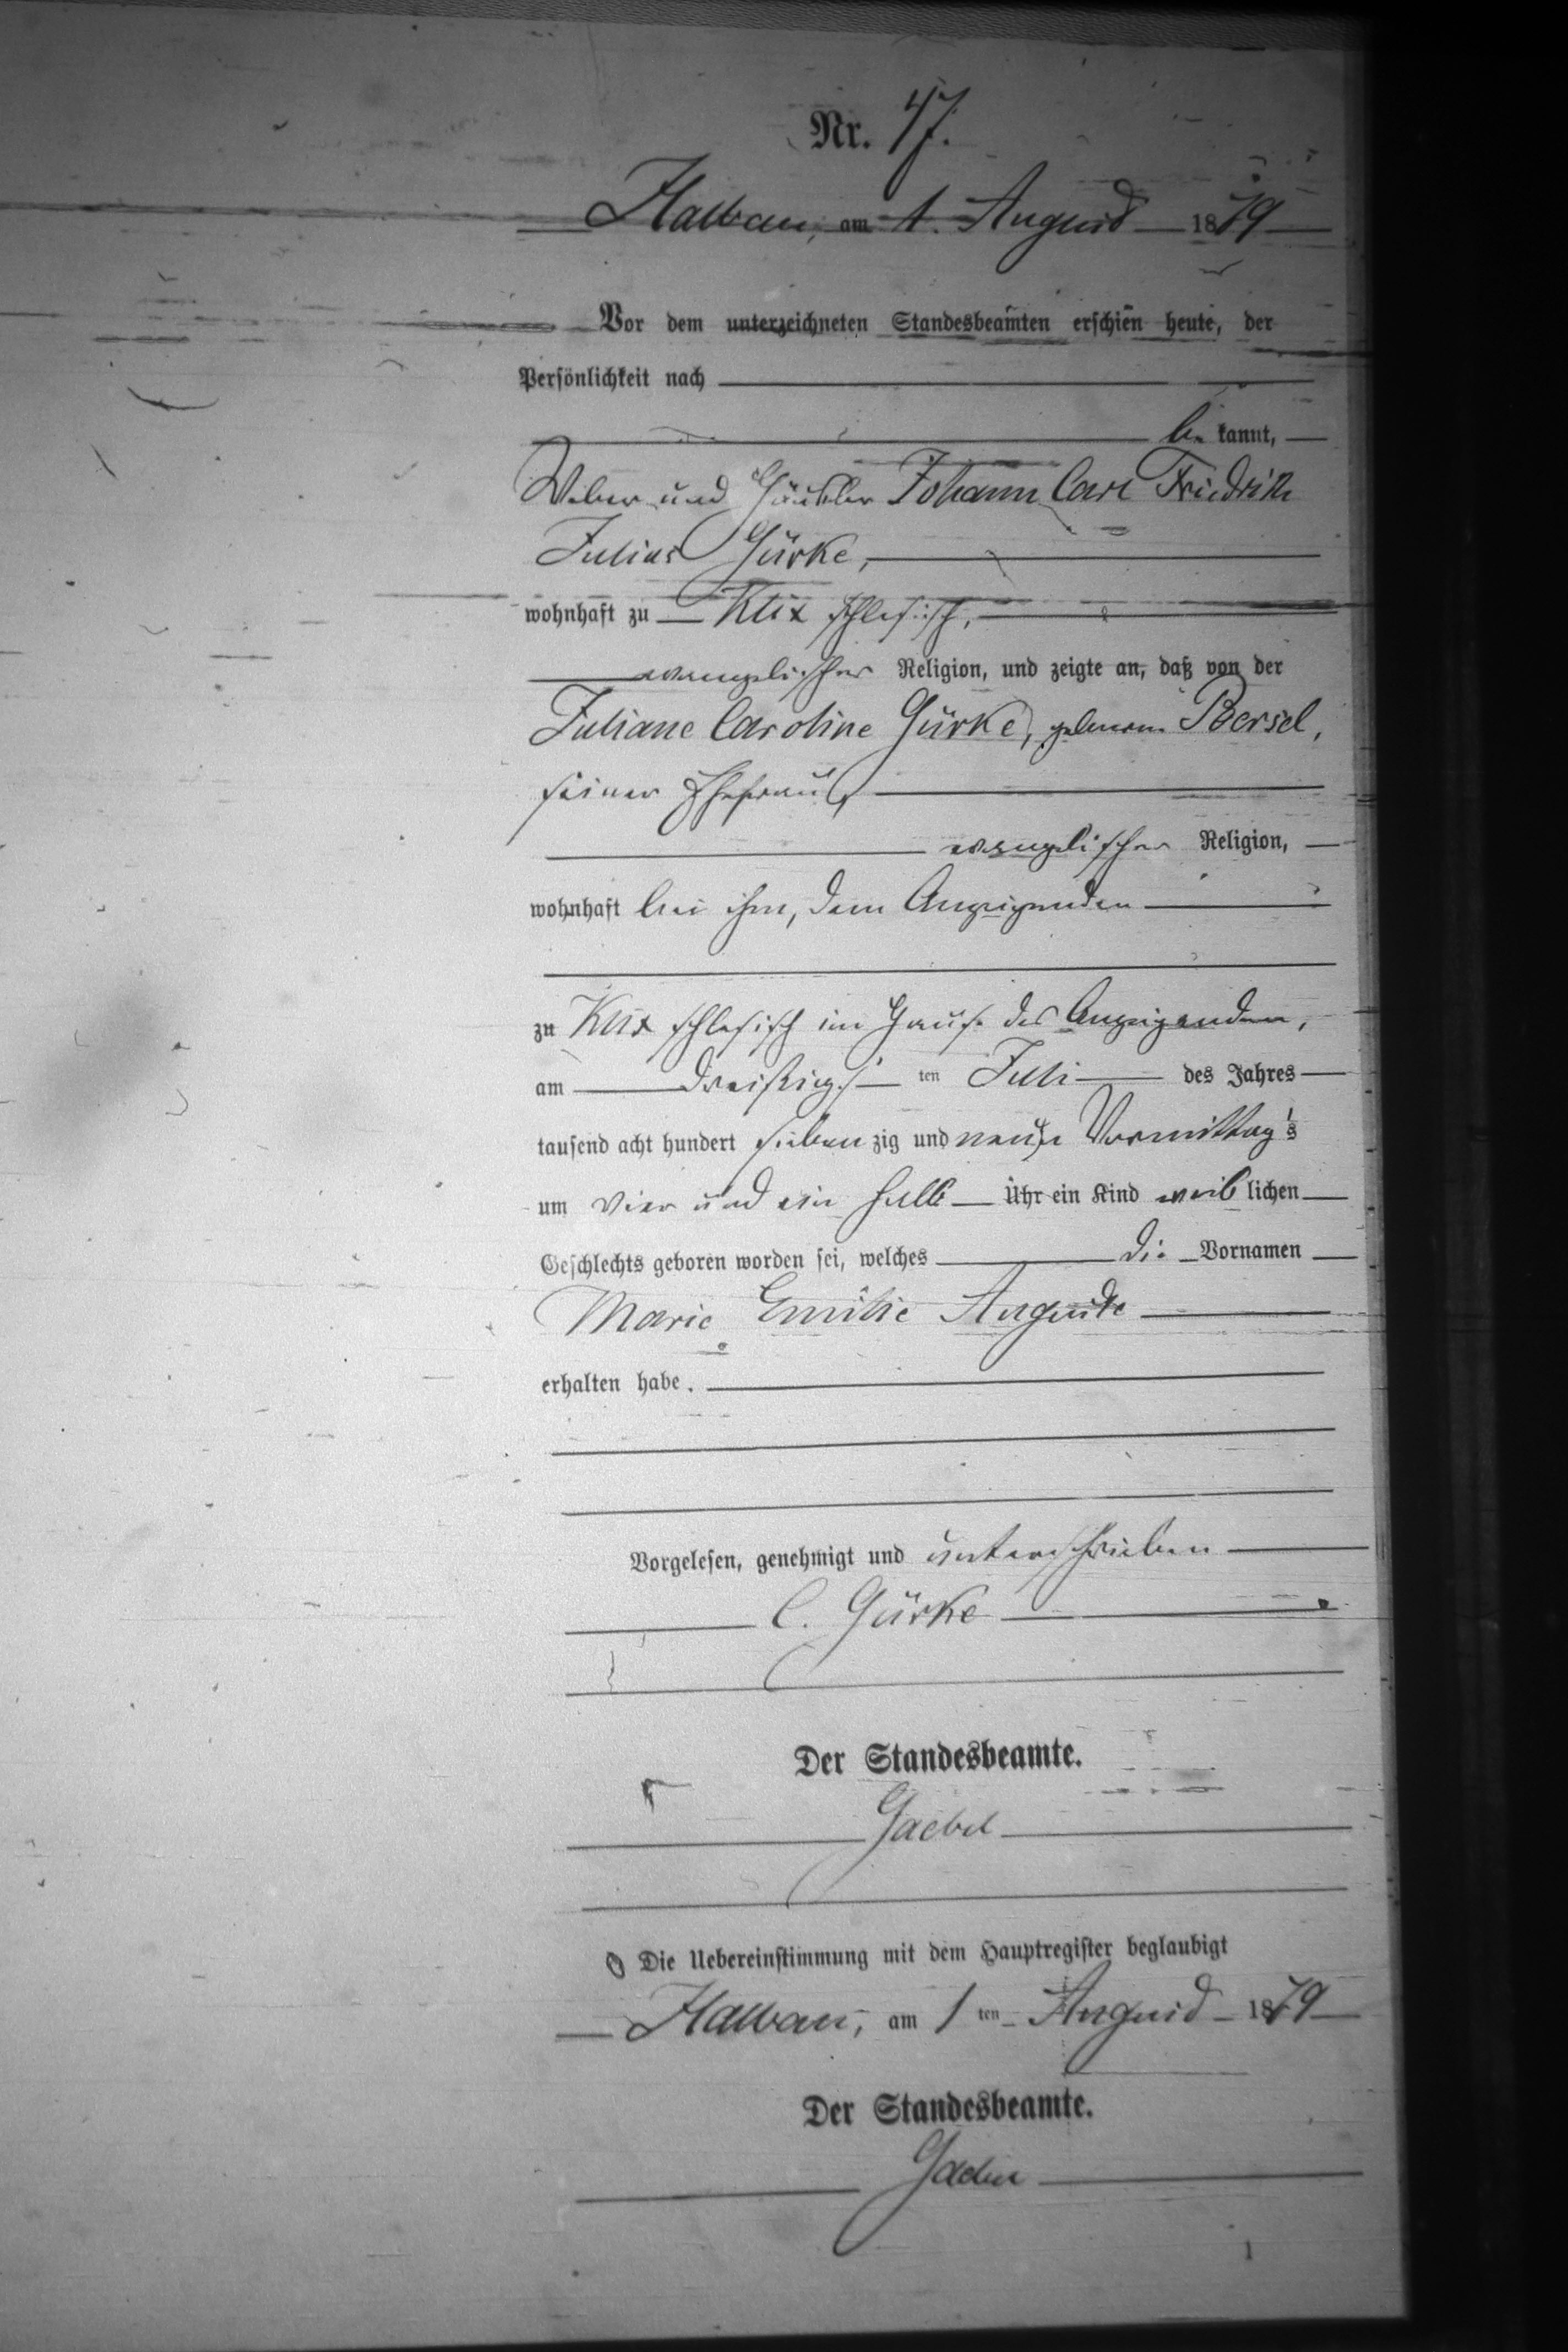 Nr. 47.
Halbau, am 1. August 1879
Vor dem unterzeichneten Standesbeamten erschien heute, der
Persönlichkeit nach
be kannt,
Weber und Häusler Johann Carl Friedrich
Julius Gürke,
wohnhaft zu Klix schlesisch,
evangelischer Religion, und zeigte an, daß von der
Juliane Caroline Gürke, geborene Bersel,
seiner Ehefrau,
evangelischer Religion,
wohnhaft bei ihm, dem Anzeigenden
zu Klix schlesisch im Hause des Anzeigenden,
am dreißigs ten Juli des Jahres
tausend acht hundert sieben zig und neun Vormittags
um vier und ein halb Uhr ein Kind weib lichen
Geschlechts geboren worden sei, welches die Vornamen
Marie Emilie Auguste
erhalten habe.
Vorgelesen, genehmigt und unterschrieben
C. Gürke
Der Standesbeamte.
Gaebel
Die Uebereinstimmung mit dem Hauptregister beglaubigt
Halbau, am 1 ten August 1879
Der Standesbeamte.
Gaebel